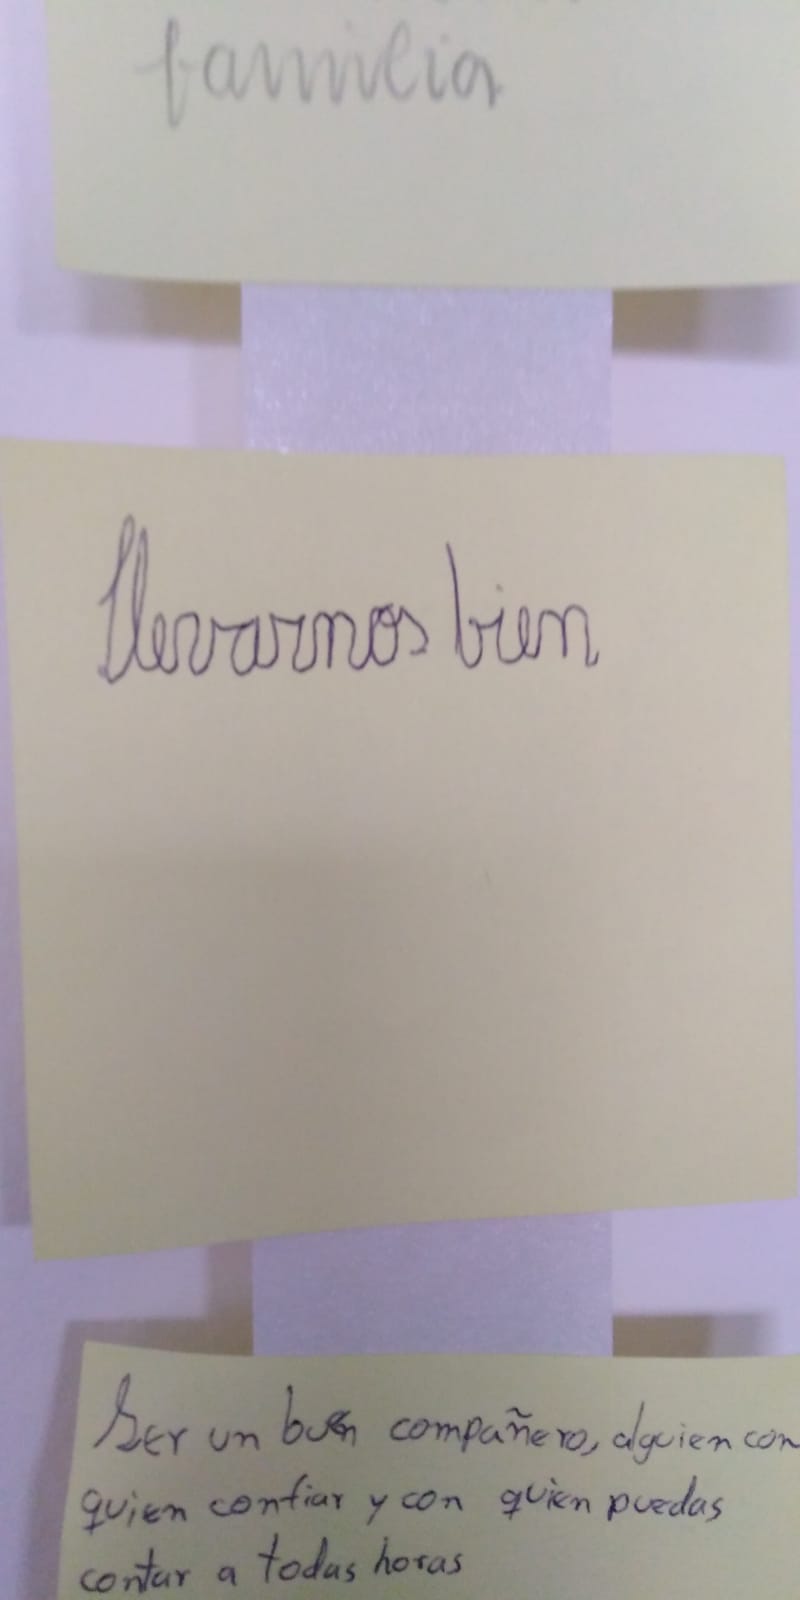 familia
llevarnos bien
Ser un buen compañero, alguien con
quien confiar y con quien puedas
contar a todas horas